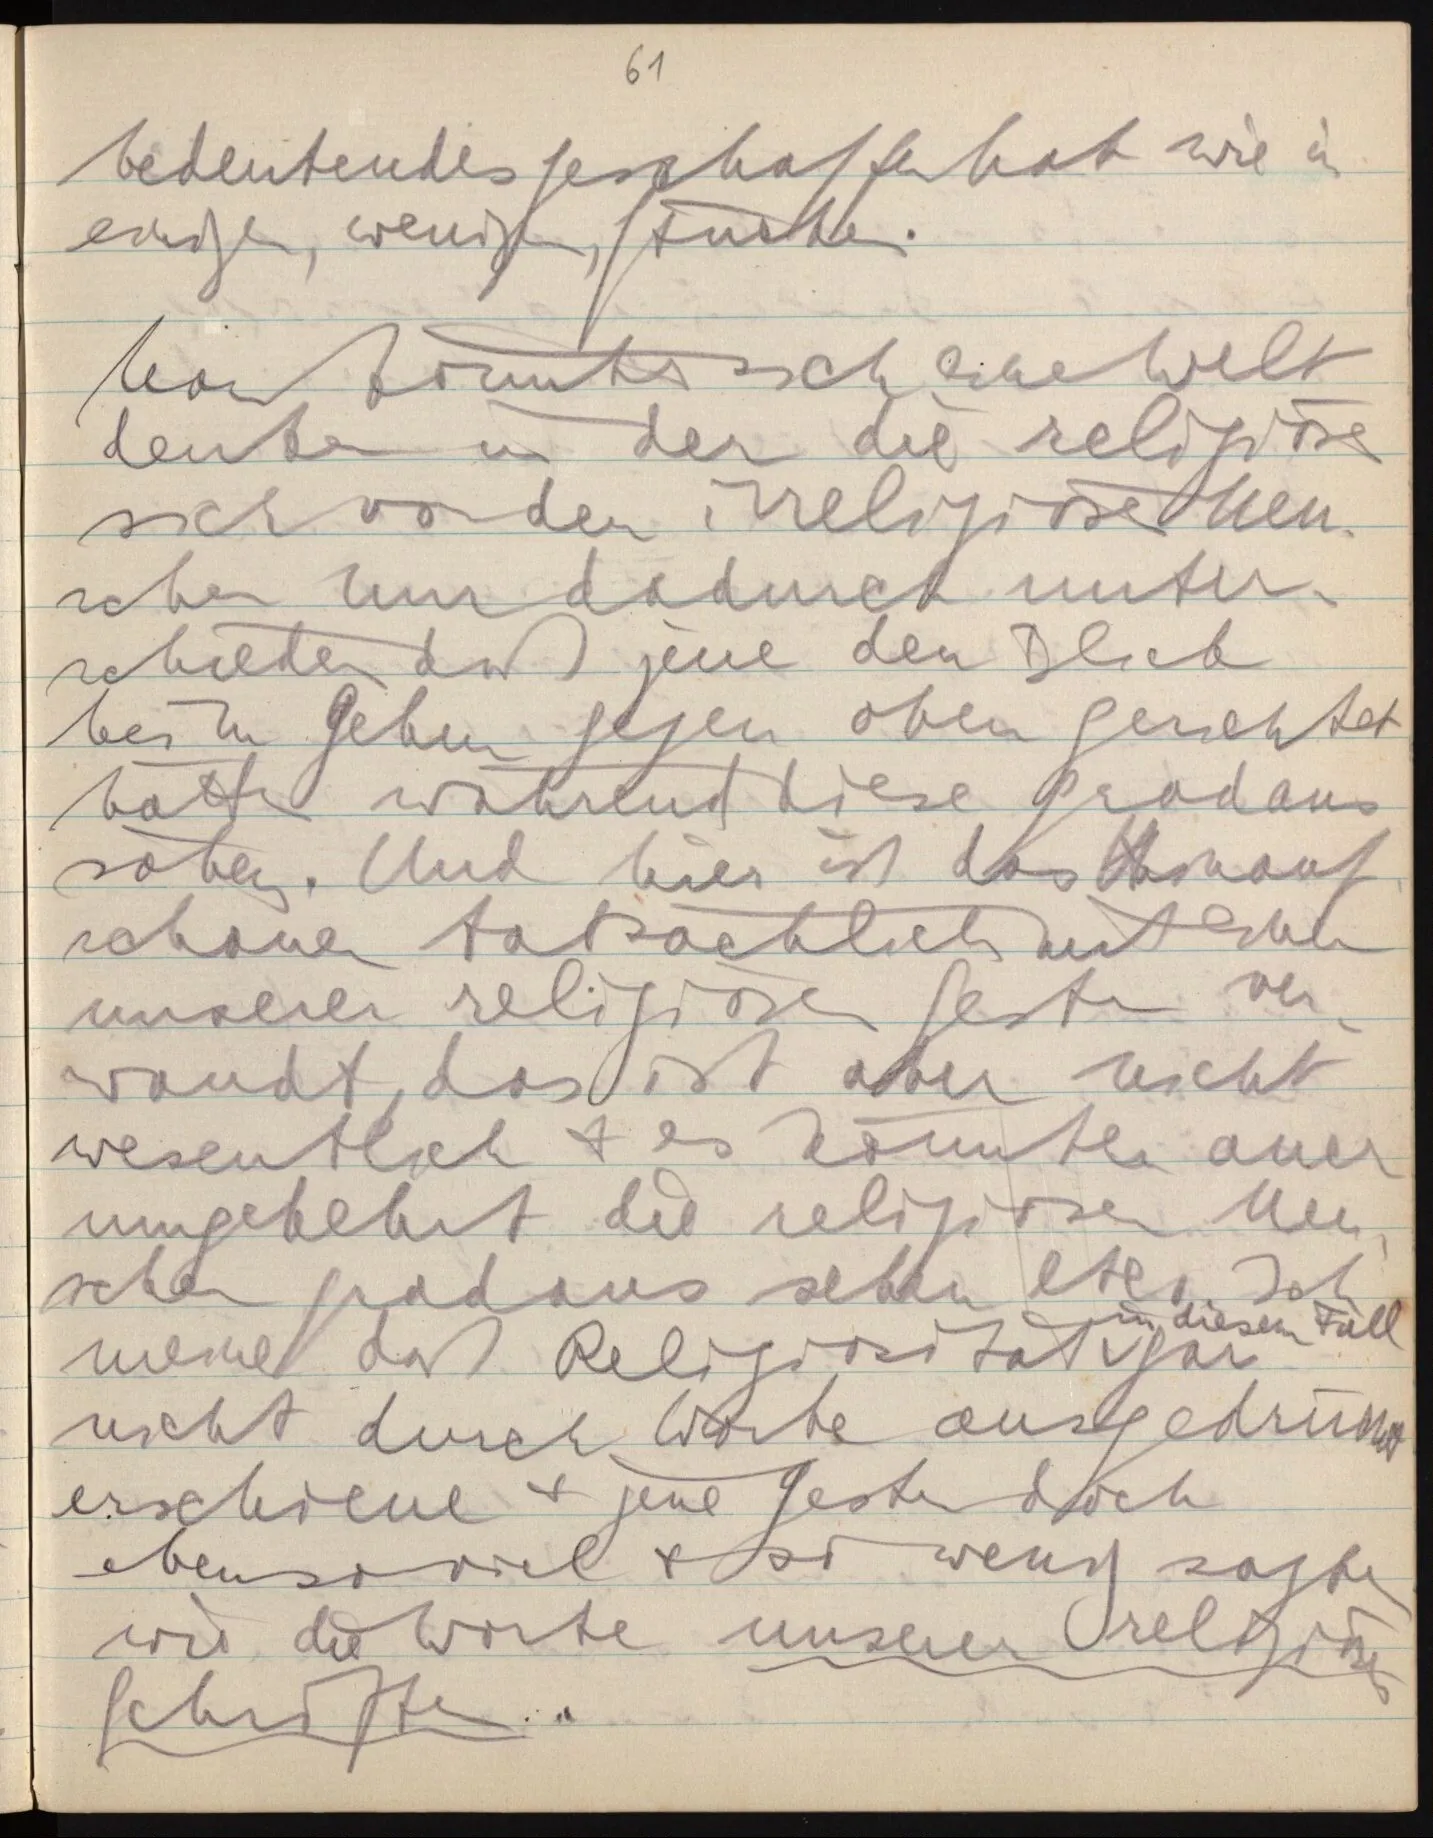 61
bedeutendes geschaffen hat wie in
einigen, wenigen, Stücken.
Man könnte sich eine Welt
denken in der die religiösen
sich von den irreligiösen Men-
schen nur dadurch unter-
schieden daß jene den Blick
beim Gehen gegen oben gerichtet
hätten während diese gradaus
sähen. Und hier ist das Hinauf-
schauen tatsächlich mit einer
unserer religiösen Gesten ver-
wandt, das ist aber nicht
wesentlich & es könnten auch
umgekehrt die religiösen Men-
schen gradaus sehen etc. Ich
meine daß Religiosität in diesem Fall gar
nicht durch Worte ausgedrückt
erschiene & jene Gesten doch
ebenso viel & so wenig sagten
wie die Worte unserer religiösen
Schriften.